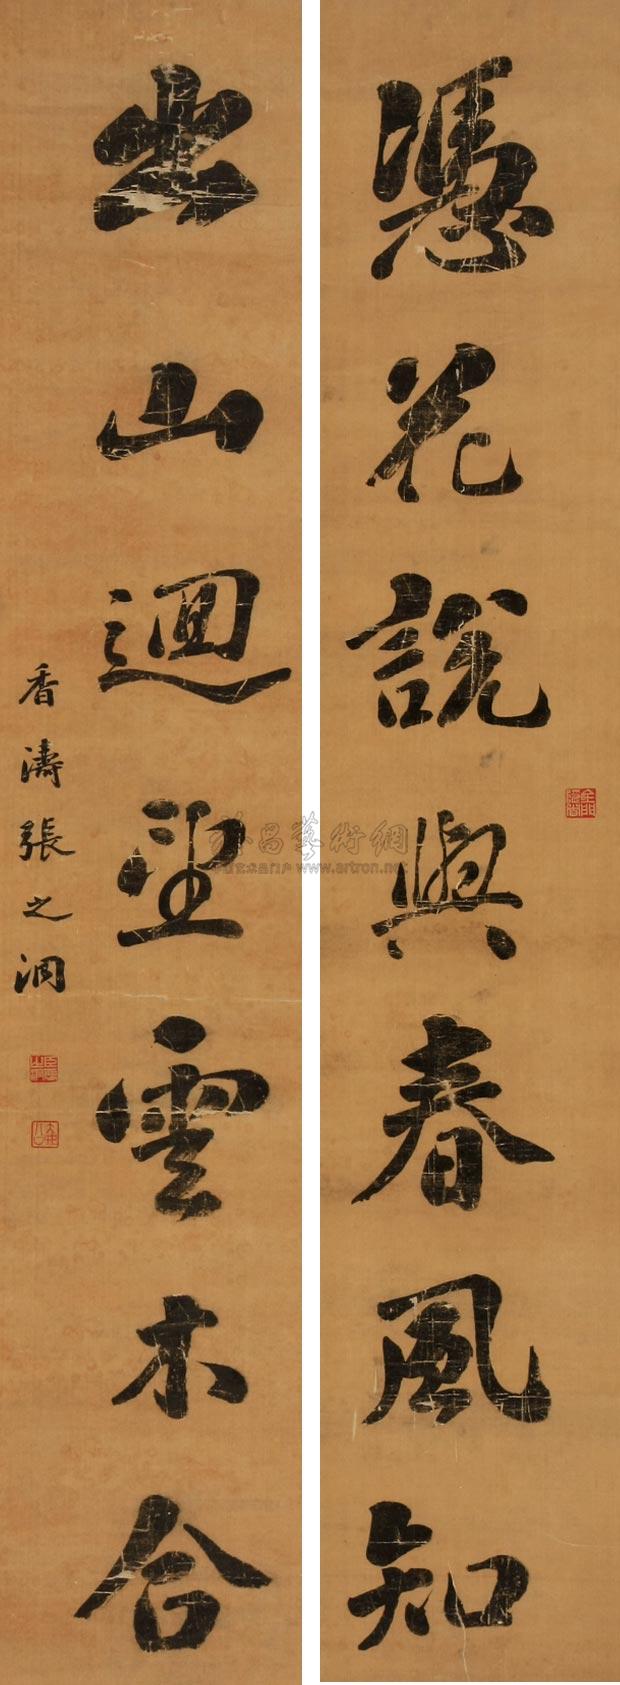 憑花說與春風知
出山迴望雲木合
香濤張之洞
www.artron.net